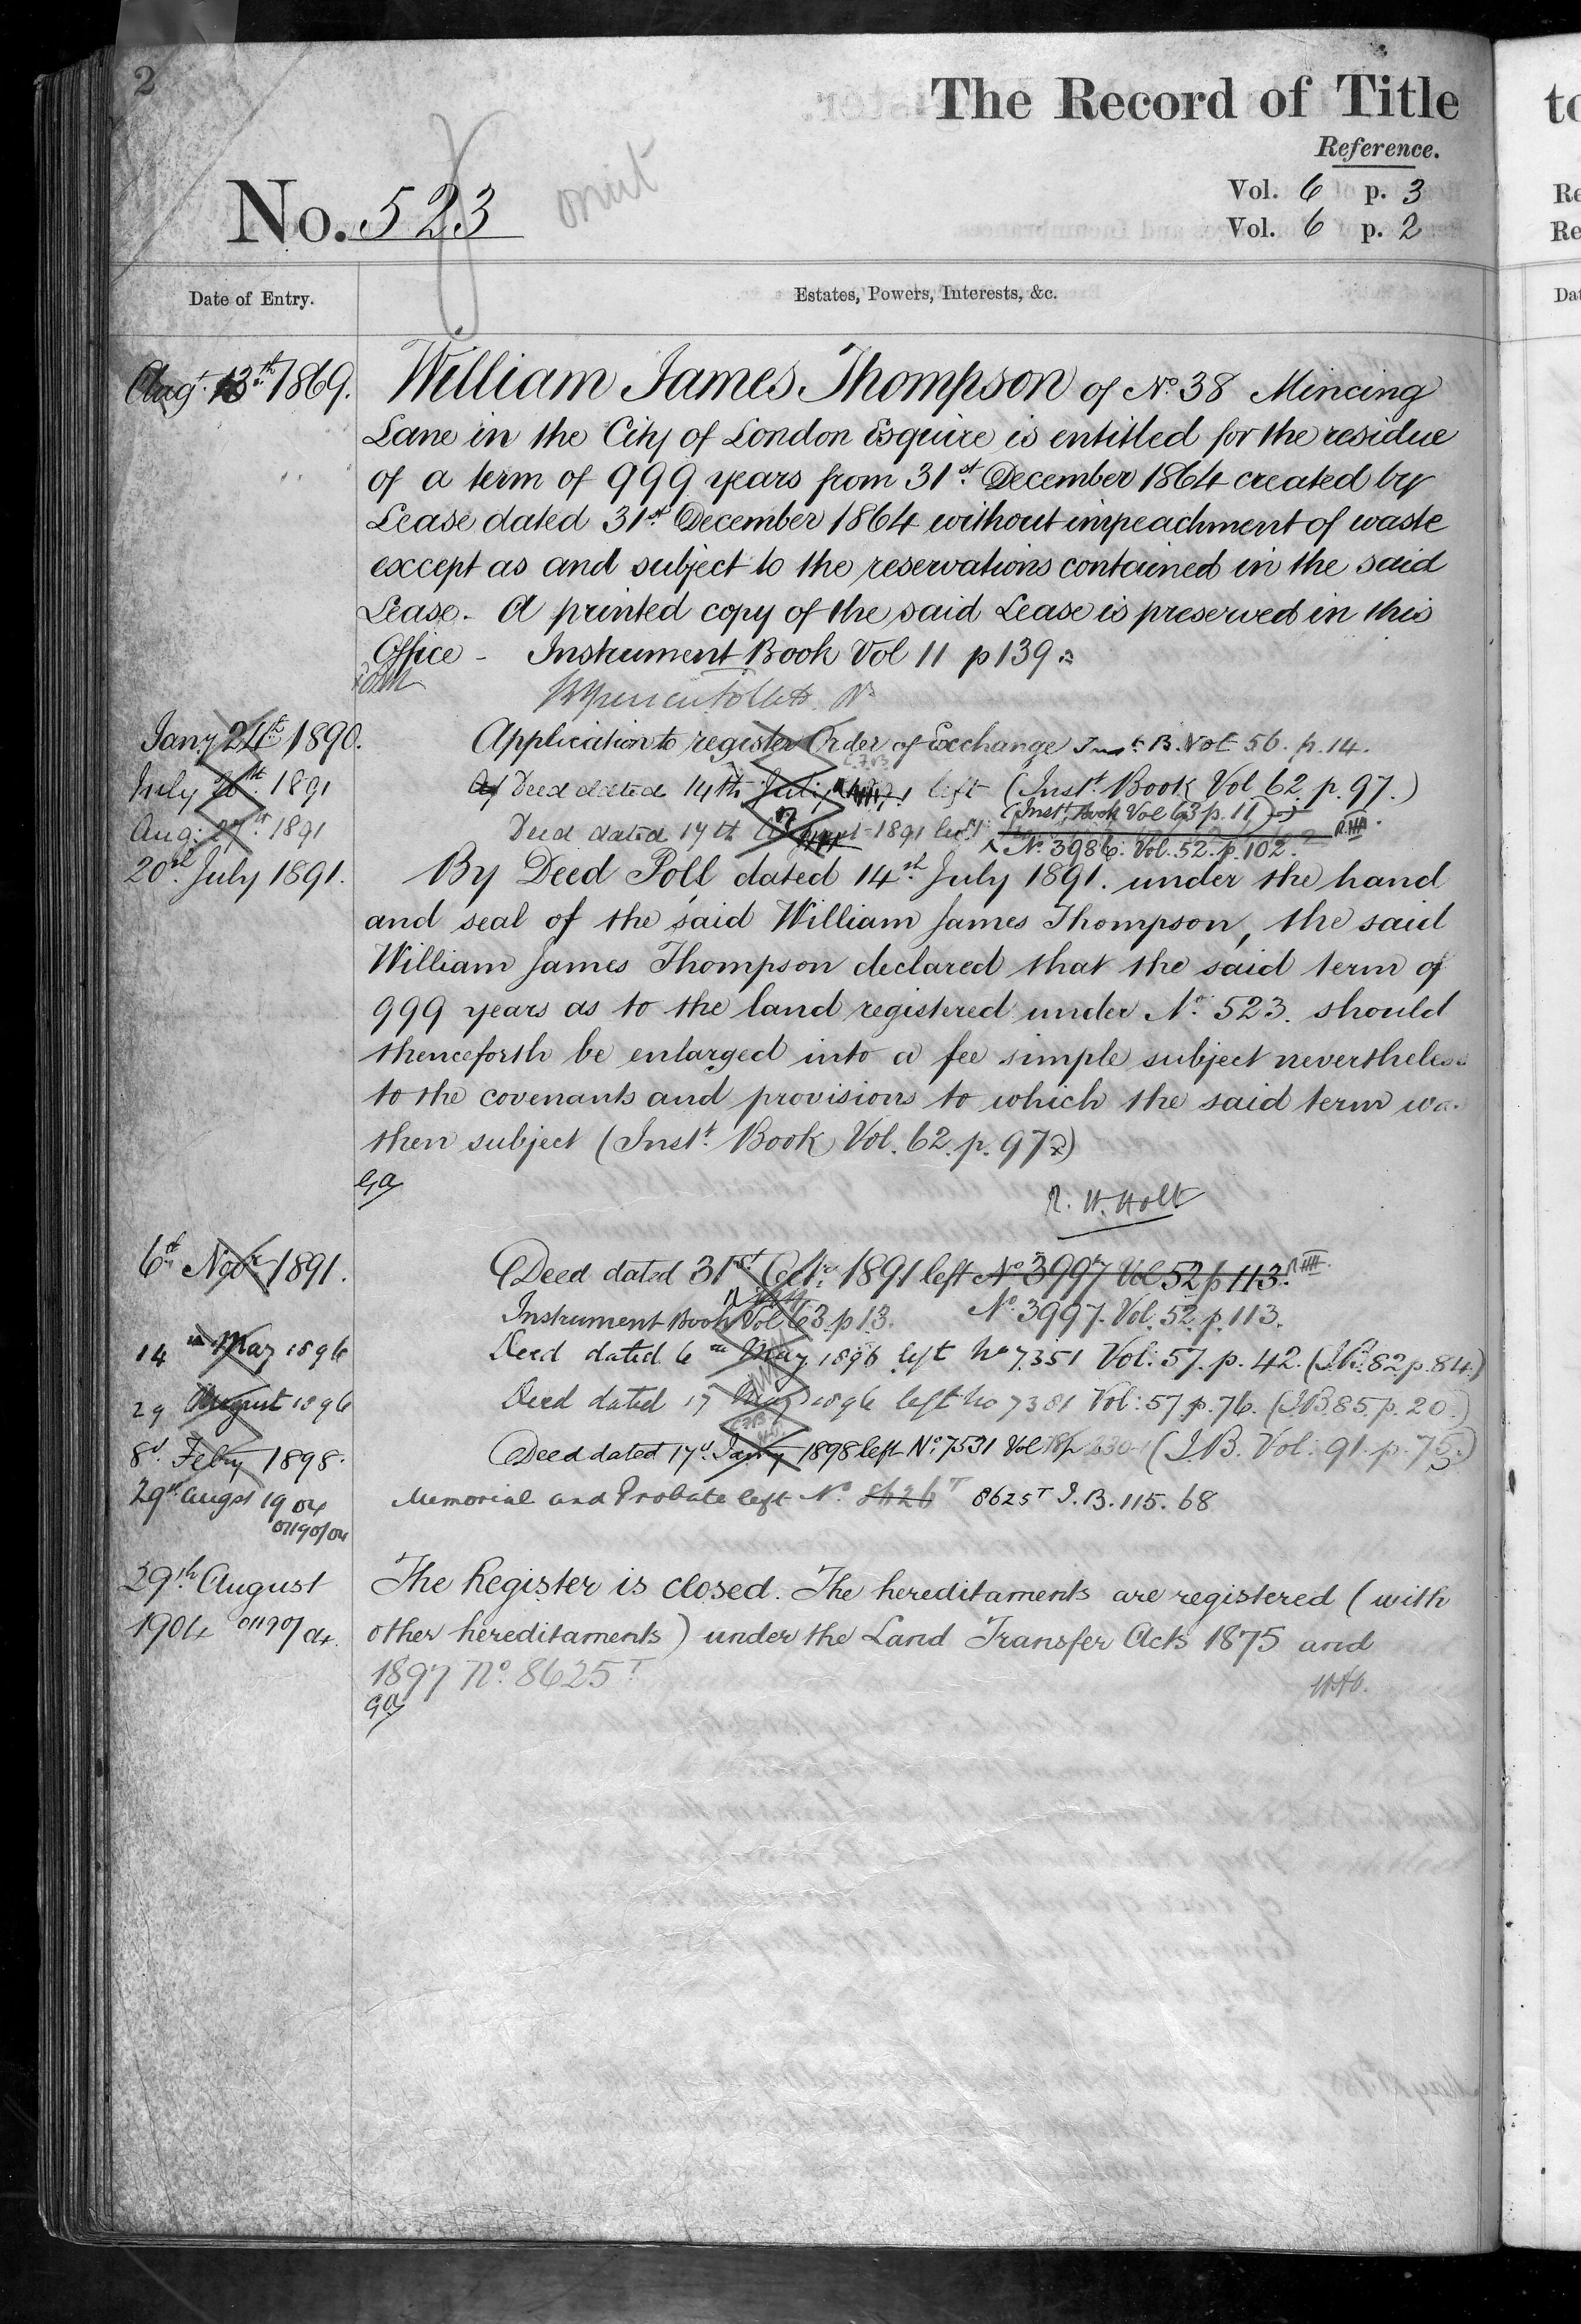 2
The Record of Title
Reference.
No. 523
omit
Vol. 6 p. 3
Vol. 6 p. 2
Date of Entry.
Estates, Powers, Interests, &c.
Augt. 13th 1869.
William James Thompson of No. 38 Mincing
Lane in the City of London Esquire is entitled for the residue
of a term of 999 years from 31st December 1864 created by
Lease dated 31st December 1864 without impeachment of waste
except as and subject to the reservations contained in the said
Lease. A printed copy of the said Lease is preserved in this
Office - Instrument Book Vol 11 p 139
Jany 24th 1890. Application to register Order of Exchange Inst. B. Vol 56. p. 14.
July 20th 1891 Deed dated 14th July 1891 left (Inst. Book Vol 62. p. 97.)
(Inst. Book Vol 63 p. 11)
Aug: 27th 1891 Deed dated 17th August 1891 left
No. 3986. Vol. 52. p. 102.
20th July 1891. By Deed Poll dated 14th July 1891. under the hand
and seal of the said William James Thompson, the said
William James Thompson declared that the said term of
999 years as to the land registered under No. 523. should
thenceforth be enlarged into a fee simple subject nevertheless
to the covenants and provisions to which the said term was
then subject (Inst. Book Vol. 62. p. 97)
GA
R. W. Holt
6th Novr 1891. Deed dated 31st Octr. 1891 left No 3997 Vol 52 p 113.
Instrument Book Vol 63. p 13. No. 3997. Vol. 52. p. 113.
14th May 1896 Deed dated 6th May 1896 left No 7351 Vol: 57. p. 42. (I.B. 82 p. 84.)
29 August 1896 Deed dated 17 Aug 1896 left No 7381 Vol: 57 p. 76. (I.B. 85. p. 20.)
8th Feby 1898. Deed dated 17th Jany 1898 left No. 7531 Vol 230 (I.B. Vol. 91. p. 75.)
29th Augst 1904 Memorial and Probate left No. 8626T 8625T I.B. 115. 68
01190/04
29th August
The Register is closed. The hereditaments are registered (with
1904 01190/04.
other hereditaments) under the Land Transfer Acts 1875 and
1897 No. 8625T
GA
to
Re
Re
Dat